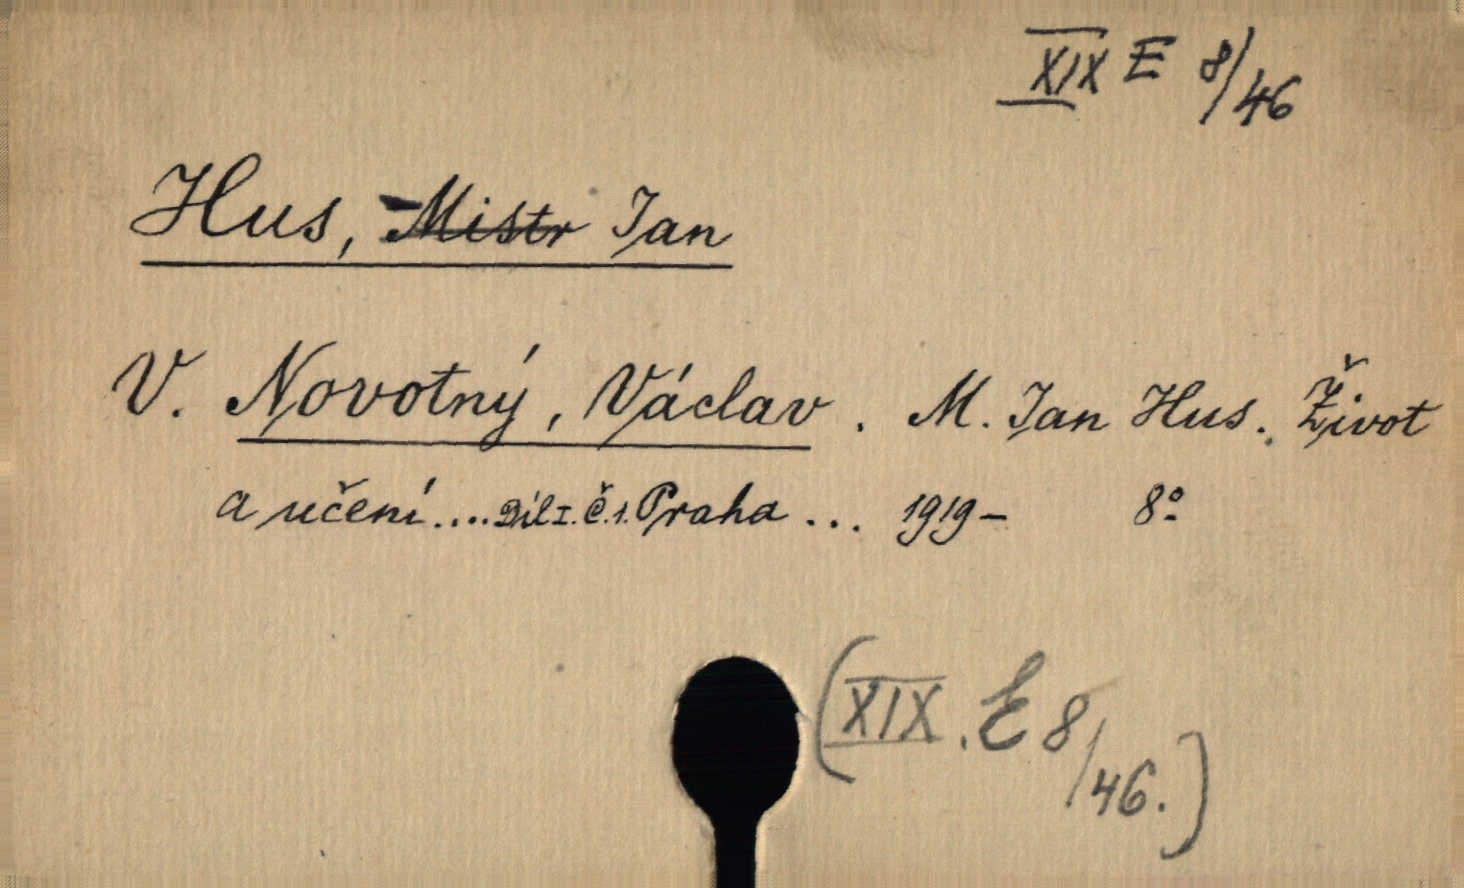 XIX E 8/46
Hus, Mistr Jan
V. Novotný, Václav. M. Jan Hus. Život
a učení.... Díl I. Č. 1. Praha ... 1919– 8º
(XIX. E 8/46.)